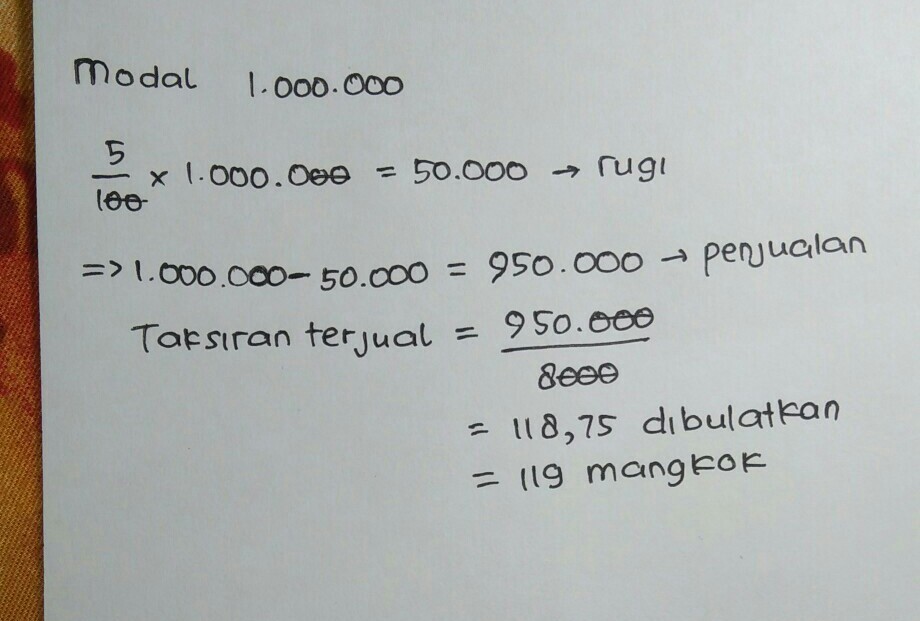 Modal 1.000.000
5/100 x 1.000.000 = 50.000 → rugi
=> 1.000.000 - 50.000 = 950.000 → penjualan
Taksiran terjual = 950.000/8000
= 118,75 dibulatkan
= 119 mangkok